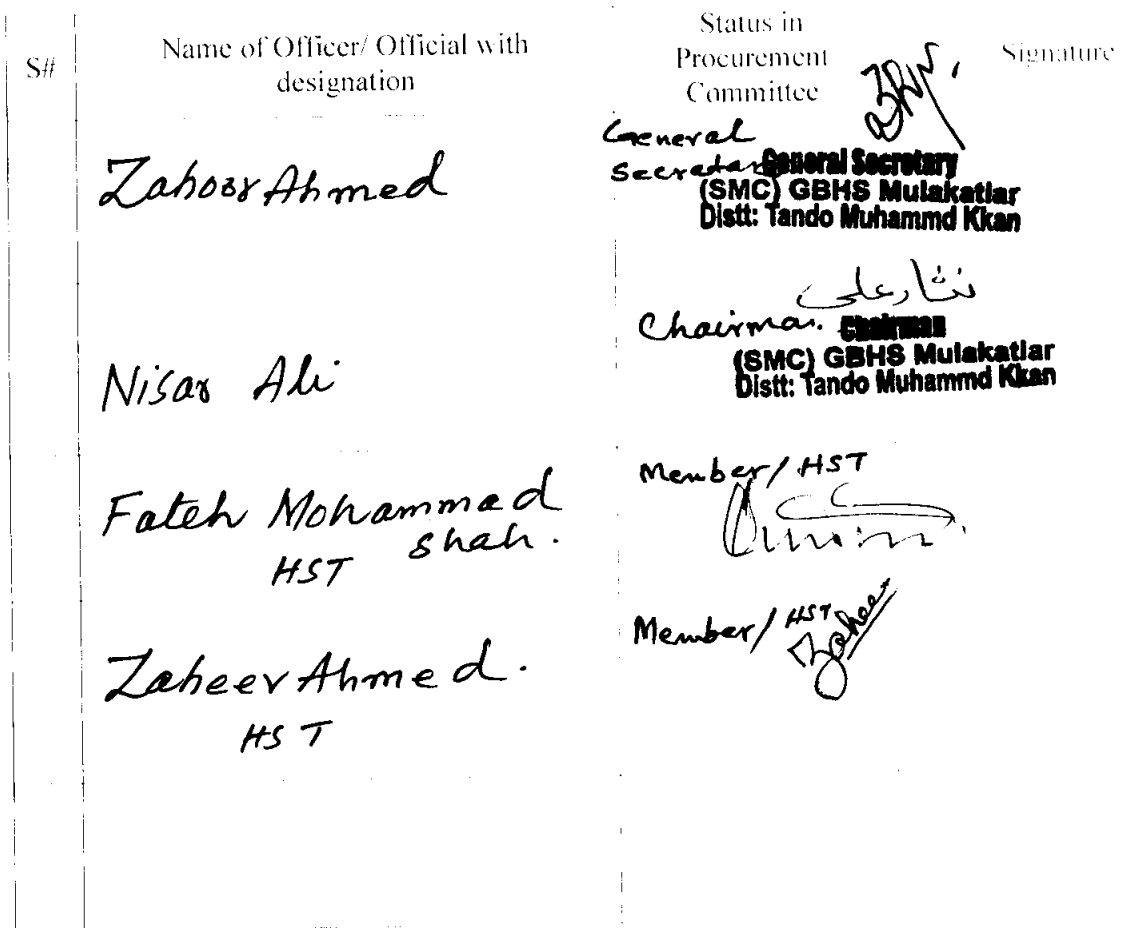 S#
Name of Officer/ Official with
designation
Status in
Procurement
Committee
Signature
Zahoor Ahmed
General
Secretary
General Secretary
(SMC) GBHS Mulakatiar
Distt: Tando Muhammd Kkan
نثار علی
Chairman
Chairman
(SMC) GBHS Mulakatiar
Distt: Tando Muhammd Kkan
Nisar Ali
Member/ HST
Fateh Mohammad
Shah.
HST
Member/ HST
Zaheer
Zaheer Ahmed.
HST